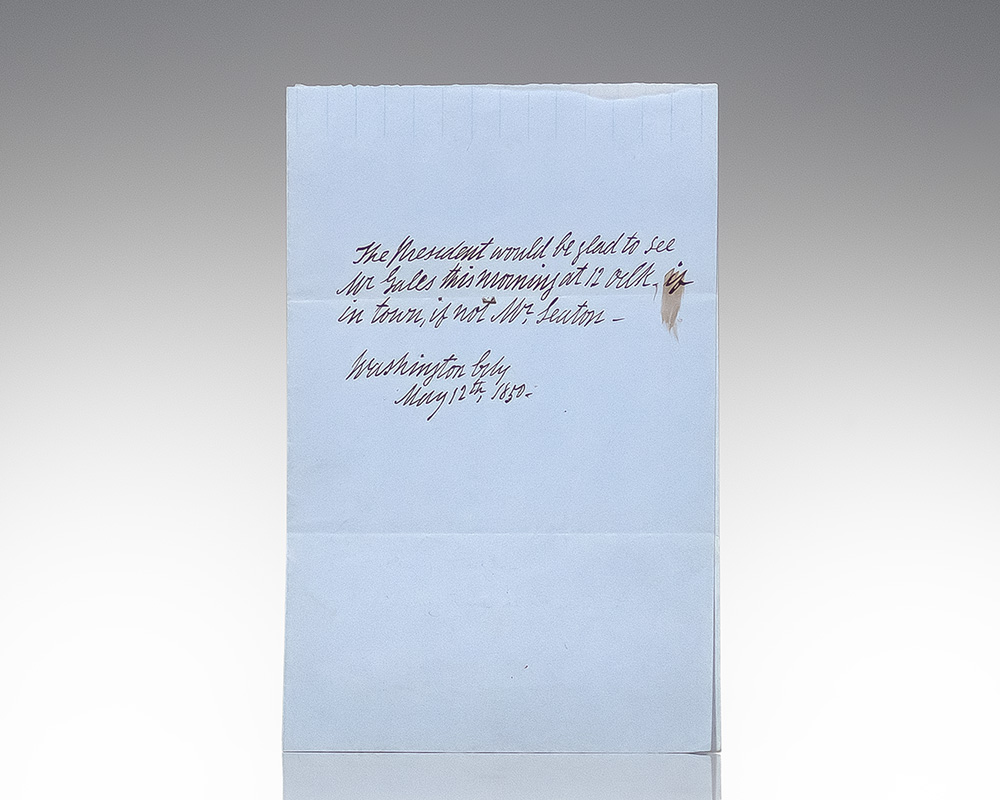 The President would be glad to see
Mr Gales this morning at 12 oclk, if
in town, if not Mr. Seaton –
Washington City
May 12th, 1850.